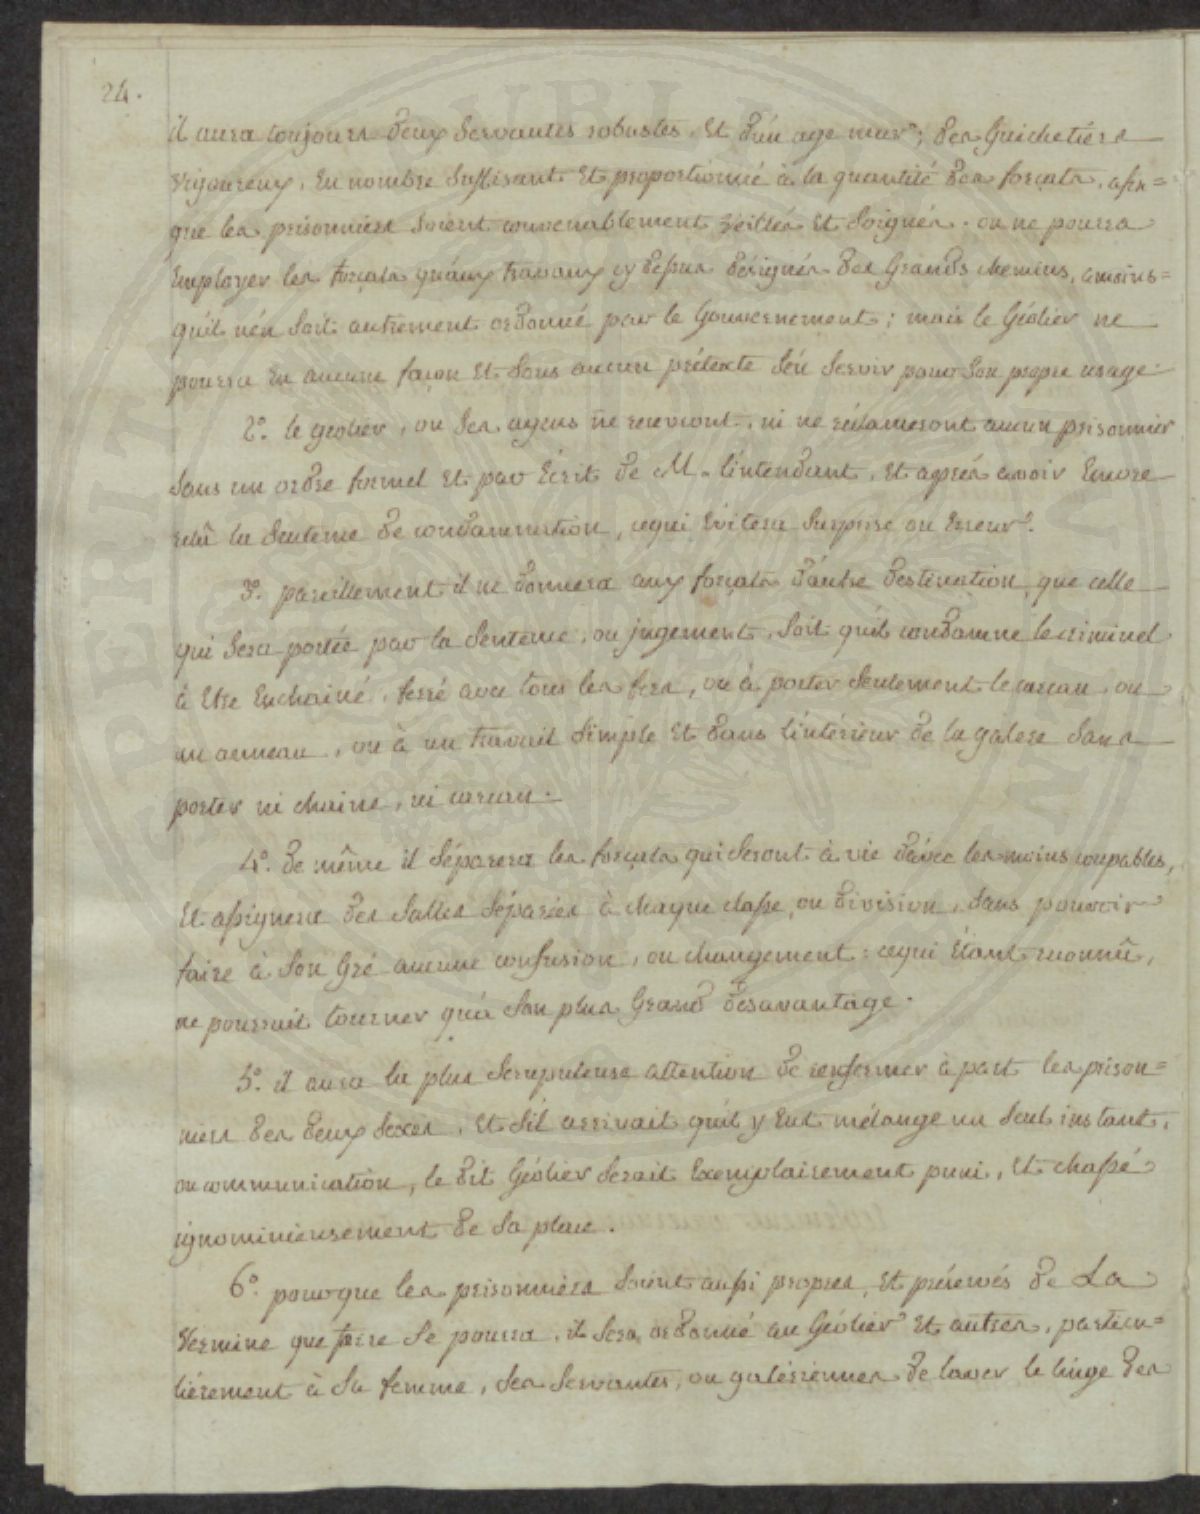 24.
il aura toujours deux Servantes robustes, Et d'un age mur; des Guichetiers
Vigoureux, En nombre Suffisant Et proportionné à la quantité des forçats, afin=
que les prisonniers Soient convenablement Veillés Et Soignés. on ne pourra
Employer les forçats qu'aux travaux cy dessus désignés des Grands chemins, amoins=
qu'il n'én Soit autrement ordonné par le Gouvernement; mais le Géolier ne
pourra En aucune façon Et Sous aucun prétexte S'én Servir pour Son propre usage.
2º. le geolier, ou Ses agens ne recevront, ni ne réclameront aucun prisonnier
Sans un ordre formel Et par Écrit de M. l'intendant, Et après avoir Encore
relû la Sentence de condamnation, cequi Évitera Surprise ou Erreur.
3º. pareillement il ne donnera aux forçats d'autre destination, que celle
qui Sera portée par la Sentence, ou jugement, Soit qu'il condamne le criminel
à Etre Enchainé, ferré avec tous les fers, ou à porter Seulement le carcan, ou
un anneau, ou à un travail Simple Et dans l'intérieur de la galere Sans
porter ni chaine, ni carcan.
4º. de même il Séparera les forçats qui Seront à vie d'avec les moins coupables,
Et assignera des Salles Séparées à chaque classe, ou division, Sans pouvoir
faire à Son Gré aucune confusion, ou changement: cequi Étant reconnû,
ne pourrait tourner qu'à Son plus Grand desavantage.
5º. il aura la plus Scrupuleuse attention de renfermer à part les prison=
niers des deux Sexes, Et S'il arrivait qu'il y Eut mélange un Seul instant,
ou communication, le dit Géolier Serait Exemplairement puni, Et chassé
ignominieusement de Sa place.
6º. pour que les prisonniers Soient aussi propres, Et préservés de La
Vermine que faire Se pourra, il Sera ordonné au Géolier Et autres, particu=
liérement à Sa femme, Ses Servantes, ou galériennes de laver le linge des